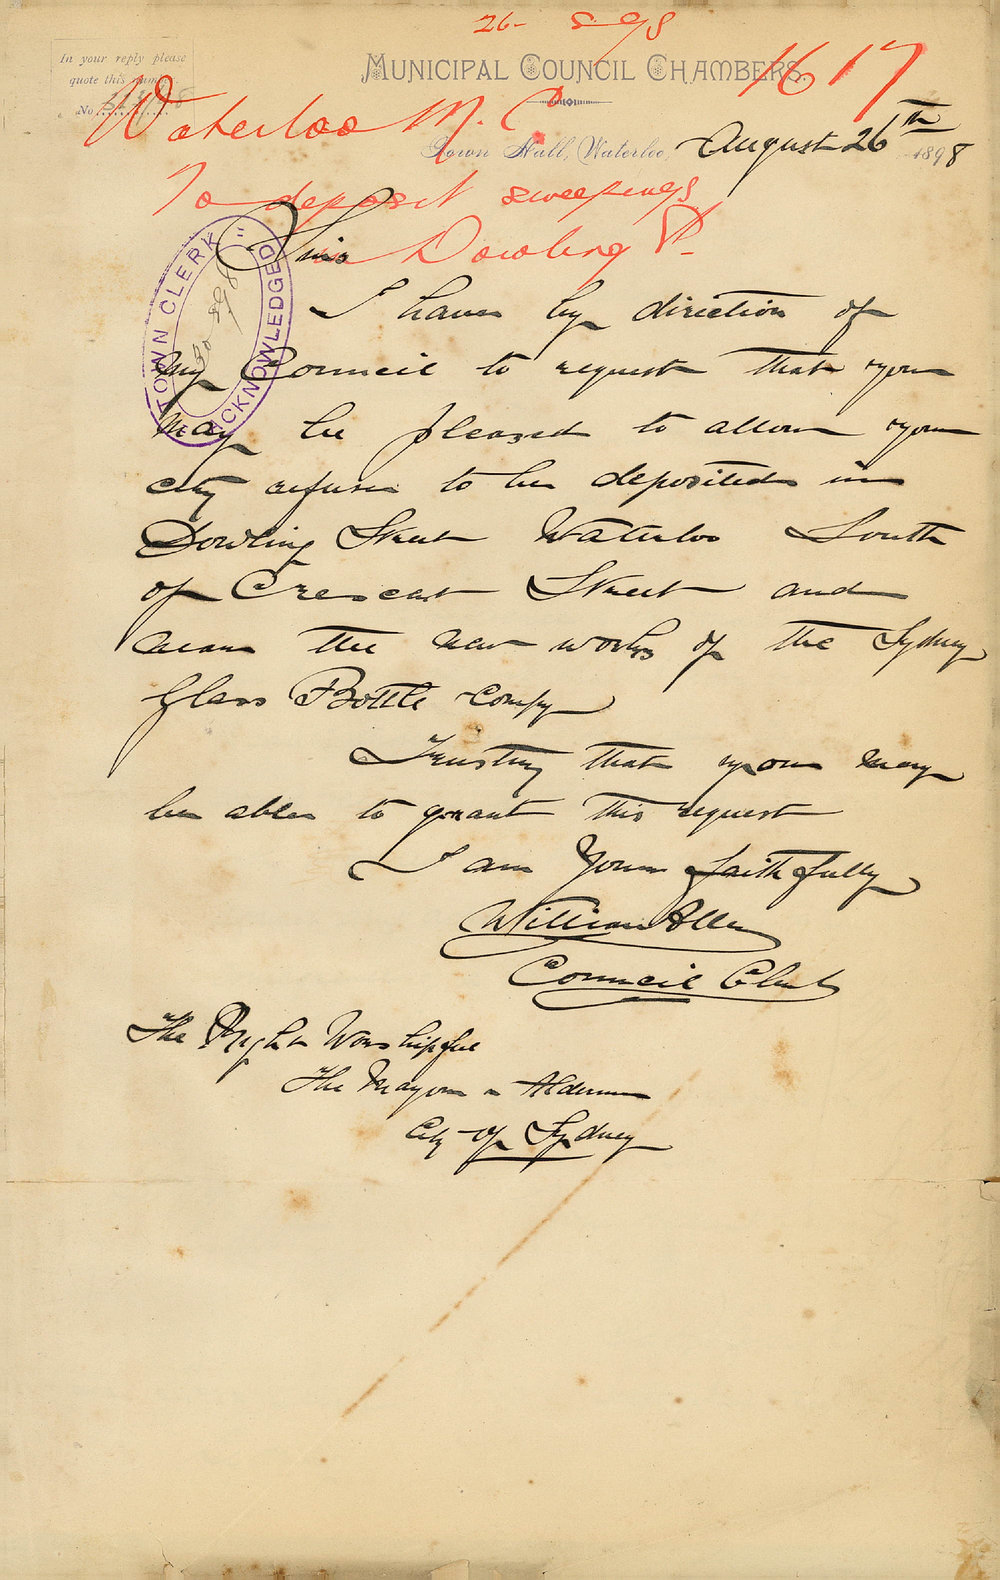 26- 8 98
In your reply please
quote this number.
No
MUNICIPAL COUNCIL CHAMBERS.
1617
Waterloo M. C
Town Hall, Waterloo, August 26th 1898
To deposit sweepings
in Dowling St.
Sirs
TOWN CLERK
"ACKNOWLEDGED"
30 8 98
I have by direction of
my Council to request that you
may be pleased to allow your
city refuse to be deposited in
Dowling Street Waterloo South
of Crescent Street and
near the new works of the Sydney
Glass Bottle Compy
Trusting that you may
be able to grant this request
I am Yours faithfully
William Allen
Council Clerk
The Right Worshipful
The Mayor & Aldermen
City of Sydney